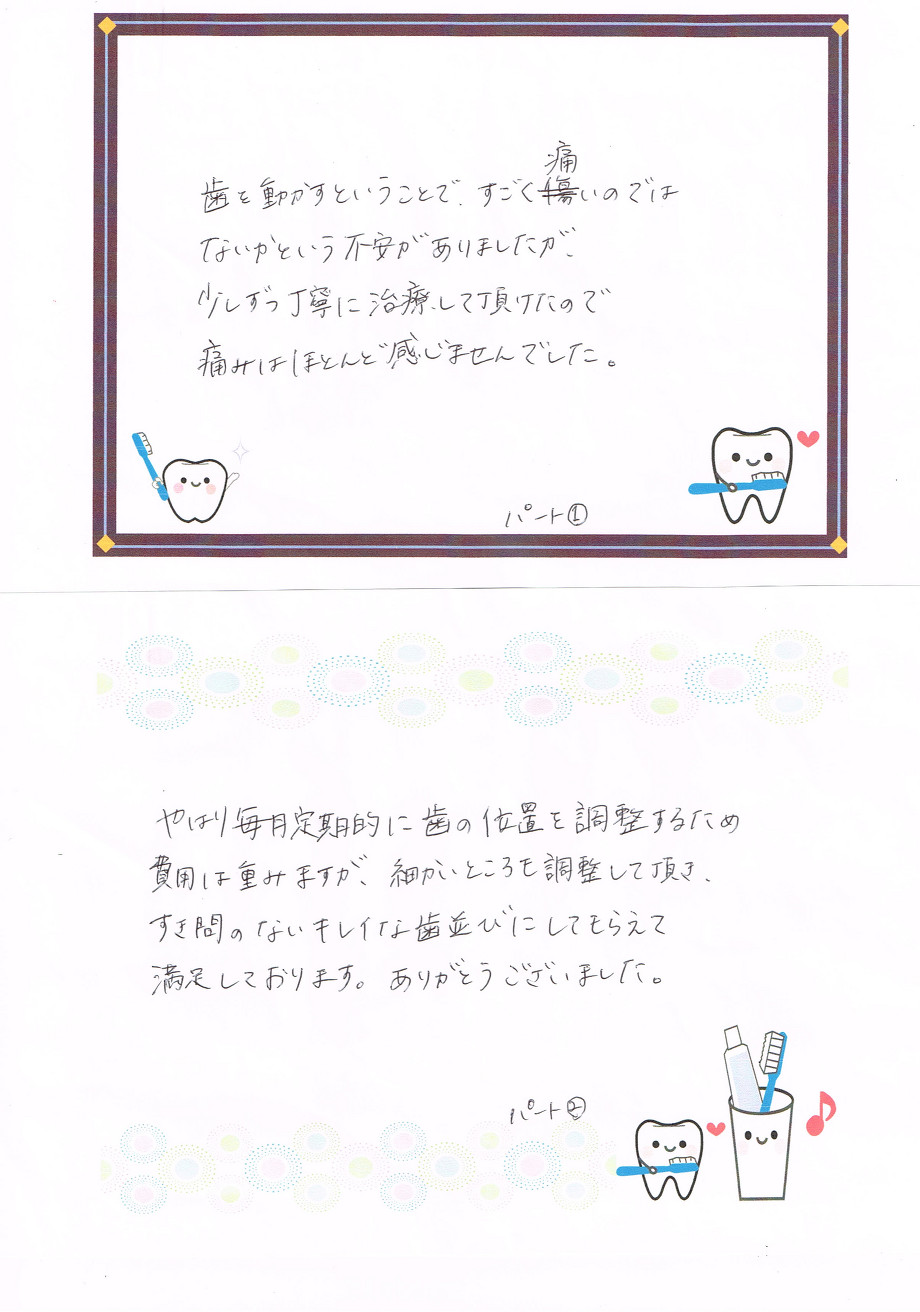 歯を動かすということで、すごく痛いのでは
ないかという不安がありましたが、
少しずつ丁寧に治療して頂けたので
痛みはほとんど感じませんでした。
パート①
やはり毎月定期的に歯の位置を調整するため
費用は重みますが、細かいところも調整して頂き、
すき間のないキレイな歯並びにしてもらえて
満足しております。ありがとうございました。
パート②